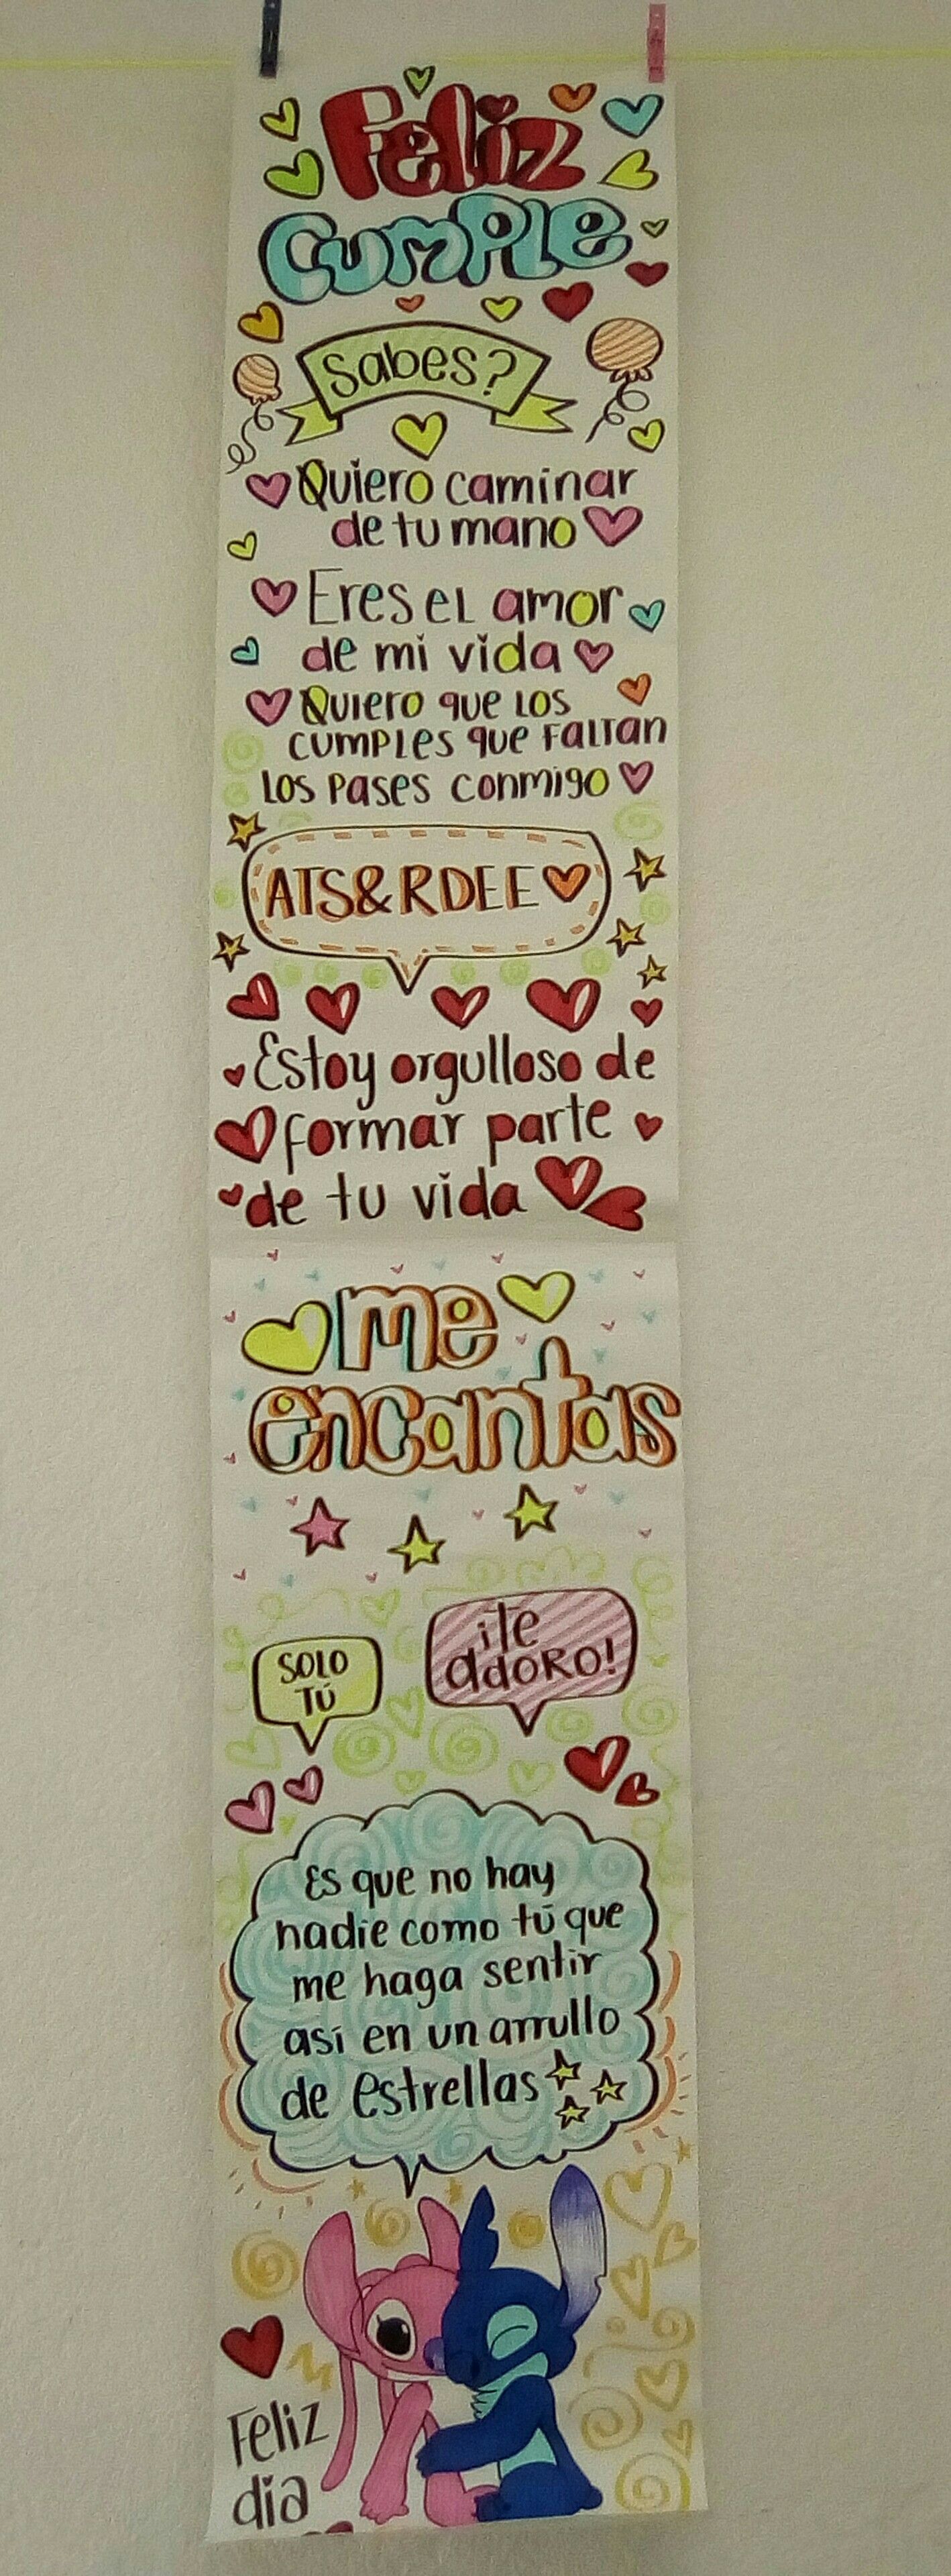 Feliz
Cumple
Sabes?
Quiero caminar
de tu mano
Eres el amor
de mi vida
Quiero que los
cumples que faltan
los pases conmigo
ATS&RDEE
Estoy orgulloso de
formar parte
de tu vida
me
encantas
SOLO
TÚ
¡Te
adoro!
Es que no hay
nadie como tú que
me haga sentir
así en un arrullo
de estrellas
Feliz
dia